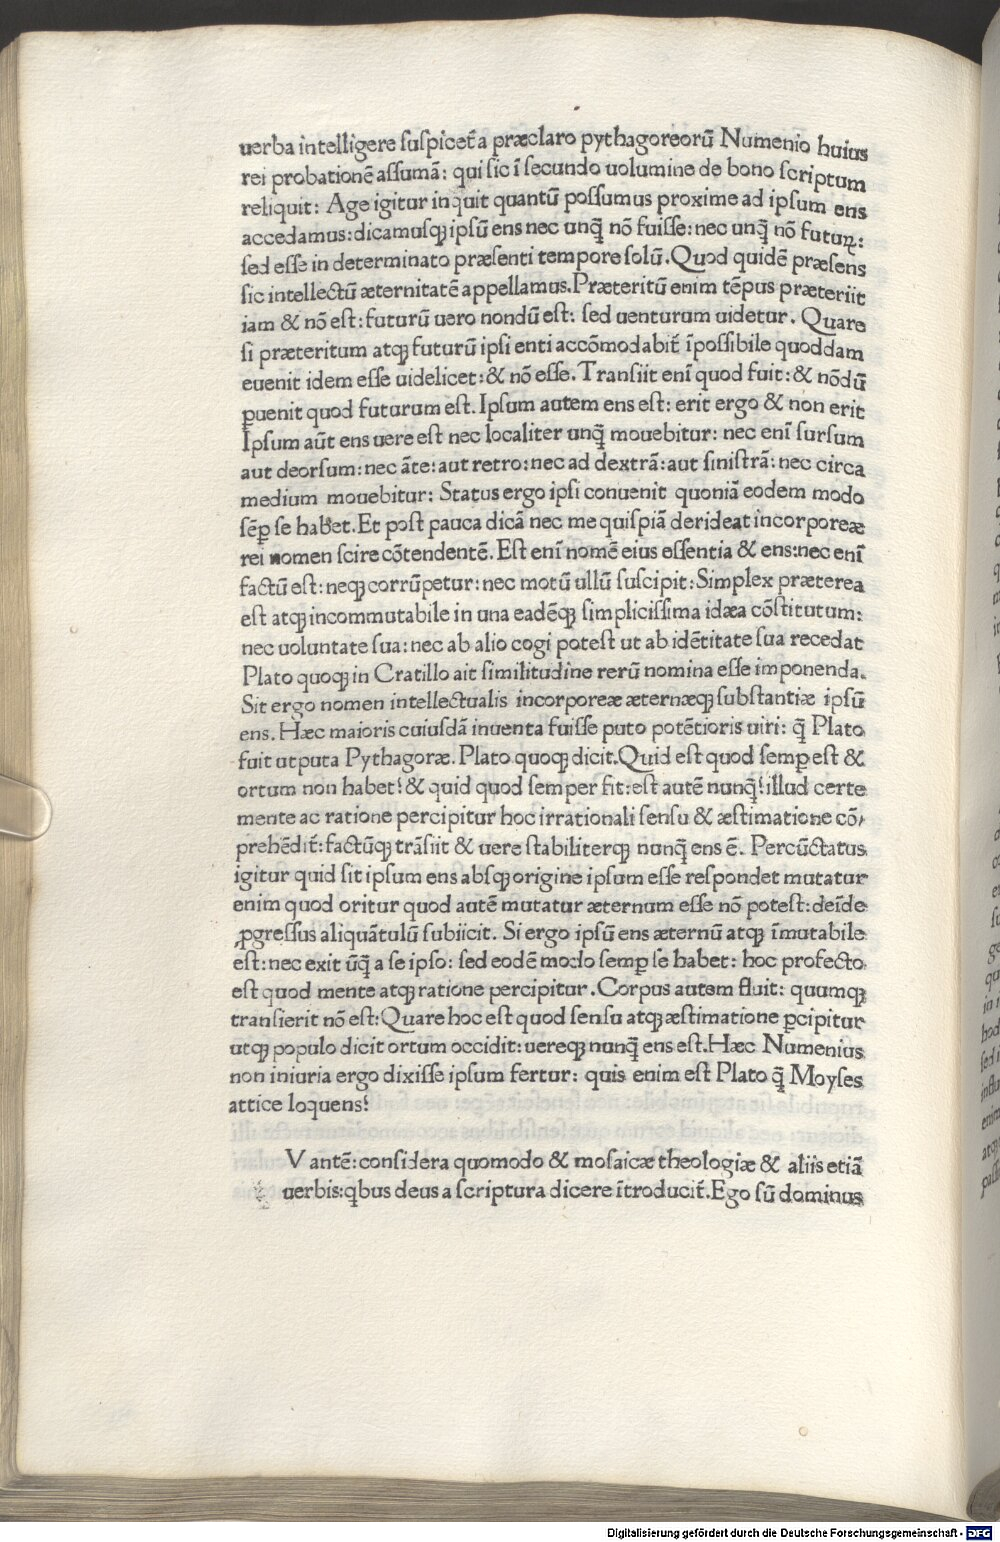 uerba intelligere suspicet̃ a præclaro pythagoreorũ Numenio huius
rei probationẽ assumã: qui sic ĩ secundo uolumine de bono scriptum
reliquit: Age igitur inquit quantũ possumus proxime ad ipsum ens
accedamus: dicamusqꝫ ipsũ ens nec unq̃ nõ fuisse: nec unq̃ nõ futuꝝ:
sed esse in determinato præsenti tempore solũ. Quod quidẽ præsens
sic intellectũ æternitatẽ appellamus. Præteritũ enim tẽpus præteriit
iam & nõ est: futurũ uero nondũ est: sed uenturum uidetur. Quare
si præteritum atqꝫ futurũ ipsi enti accõmodabit̃ ĩpossibile quoddam
euenit idem esse uidelicet: & nõ esse. Transiit enĩ quod fuit: & nõdũ
ꝑuenit quod futurum est. Ipsum autem ens est: erit ergo & non erit
Ipsum aũt ens uere est nec localiter unq̃ mouebitur: nec enĩ sursum
aut deorsum: nec ãte: aut retro: nec ad dextrã: aut sinistrã: nec circa
medium mouebitur: Status ergo ipsi conuenit quoniã eodem modo
sẽꝑ se habet. Et post pauca dicã nec me quispiã derideat incorporeæ
rei nomen scire cõtendentẽ. Est enĩ nomẽ eius essentia & ens: nec enĩ
factũ est: neqꝫ corrũpetur: nec motũ ullũ suscipit: Simplex præterea
est atqꝫ incommutabile in una eadẽqꝫ simplicissima idæa cõstitutum:
nec uoluntate sua: nec ab alio cogi potest ut ab idẽtitate sua recedat
Plato quoqꝫ in Cratillo ait similitudine rerũ nomina esse imponenda.
Sit ergo nomen intellectualis incorporeæ æternæqꝫ substantiæ ipsũ
ens. Hæc maioris cuiusdã inuenta fuisse puto potẽtioris uiri: q̃ Plato
fuit utputa Pythagoræ. Plato quoqꝫ dicit. Quid est quod semꝑ est &
ortum non habet? & quid quod semper fit: est autẽ nunq̃? illud certe
mente ac ratione percipitur hoc irrationali sensu & æstimatione cõ/
prehẽdit̃: factũqꝫ trãsiit & uere stabiliterqꝫ nunq̃ ens ẽ. Percũctatus
igitur quid sit ipsum ens absqꝫ origine ipsum esse respondet mutatur
enim quod oritur quod autẽ mutatur æternum esse nõ potest: deĩde
ꝓgressus aliquãtulũ subiicit. Si ergo ipsũ ens æternũ atqꝫ ĩmutabile
est: nec exit ũq̃ a se ipso: sed eodẽ modo semꝑ se habet: hoc profecto
est quod mente atqꝫ ratione percipitur. Corpus autem fluit: quumqꝫ
transierit nõ est: Quare hoc est quod sensu atqꝫ æstimatione ꝑcipitur
utqꝫ populo dicit ortum occidit: uereqꝫ nunq̃ ens est. Hæc Numenius
non iniuria ergo dixisse ipsum fertur: quis enim est Plato q̃ Moyses
attice loquens?
V antẽ: considera quomodo & mosaicæ theologiæ & aliis etiã
uerbis: qbus deus a scriptura dicere ĩtroducit̃. Ego sũ dominus
Digitalisierung gefördert durch die Deutsche Forschungsgemeinschaft - DFG